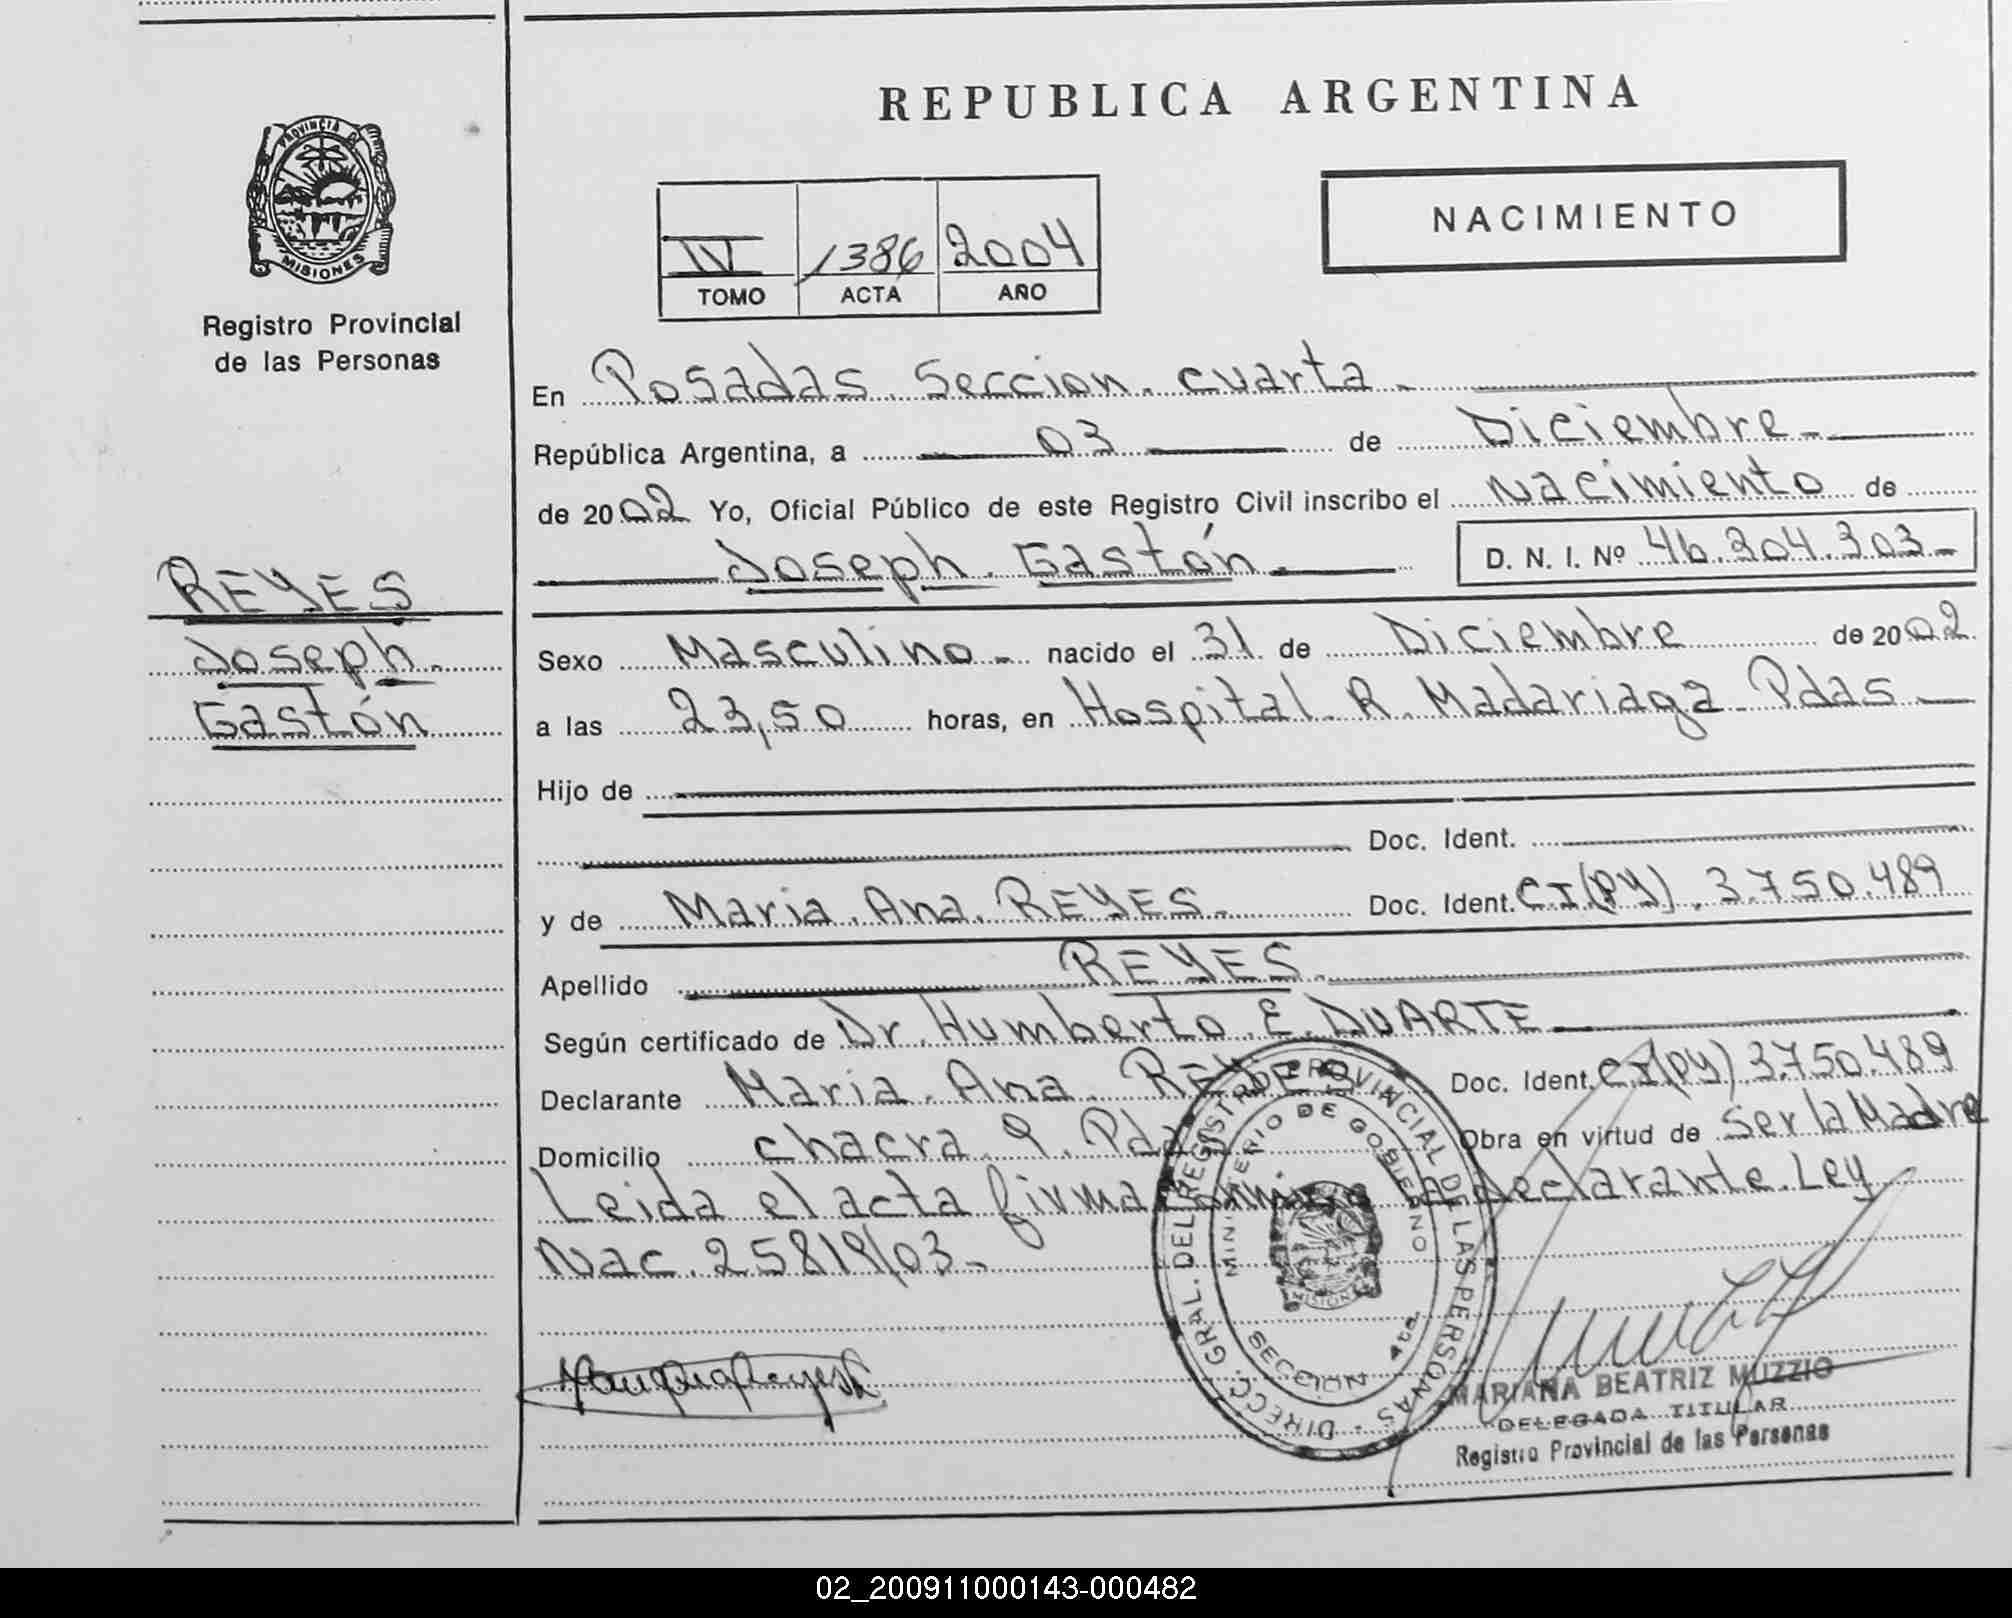 REPUBLICA ARGENTINA
PROVINCIA DE
MISIONES
Registro Provincial
de las Personas
IV 1386 2004
TOMO ACTA AÑO
NACIMIENTO
En Posadas Seccion cuarta
República Argentina, a 03 de Diciembre
de 2002 Yo, Oficial Público de este Registro Civil inscribo el Nacimiento de
Joseph Gastón D. N. I. Nº 46.304.303
REYES
Joseph
Gastón
Sexo Masculino nacido el 31 de Diciembre de 2002
a las 23,50 horas, en Hospital R. Madariaga Pdas
Hijo de
Doc. Ident.
y de Maria Ana REYES Doc. Ident. CI(PY) 3.750.489
Apellido REYES
Según certificado de Dr. Humberto E. DUARTE
Declarante Maria Ana REYES Doc. Ident. CI(PY) 3.750.489
Domicilio chacra 9. Pdas Obra en virtud de Ser la Madre
Leida el acta firma la declarante. Ley
Nac. 25819/03
DIRECC. GRAL. DEL REGISTRO PROVINCIAL DE LAS PERSONAS
MINISTERIO DE GOBIERNO
MISIONES
SECCION 4ta
MARIANA BEATRIZ MUZZIO
DELEGADA TITULAR
Registro Provincial de las Personas
02_200911000143-000482